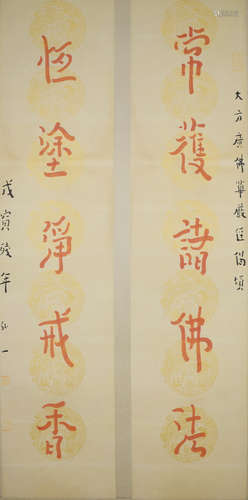 大方廣佛華嚴經偈頌
常獲諸佛法
恆塗淨戒香
戊寅殘年 弘一